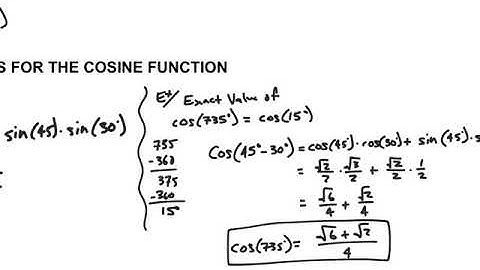 S FOR THE COSINE FUNCTION
sin(45)·sin(30°)
Ex/ Exact Value of
cos(735°) = cos(15°)
735
-360
375
-360
15°
Cos(45°-30°) = cos(45)·cos(30) + sin(45)·s
= √2/2 · √3/2 + √2/2 · 1/2
= √6/4 + √2/4
cos(735) = (√6 + √2)/4